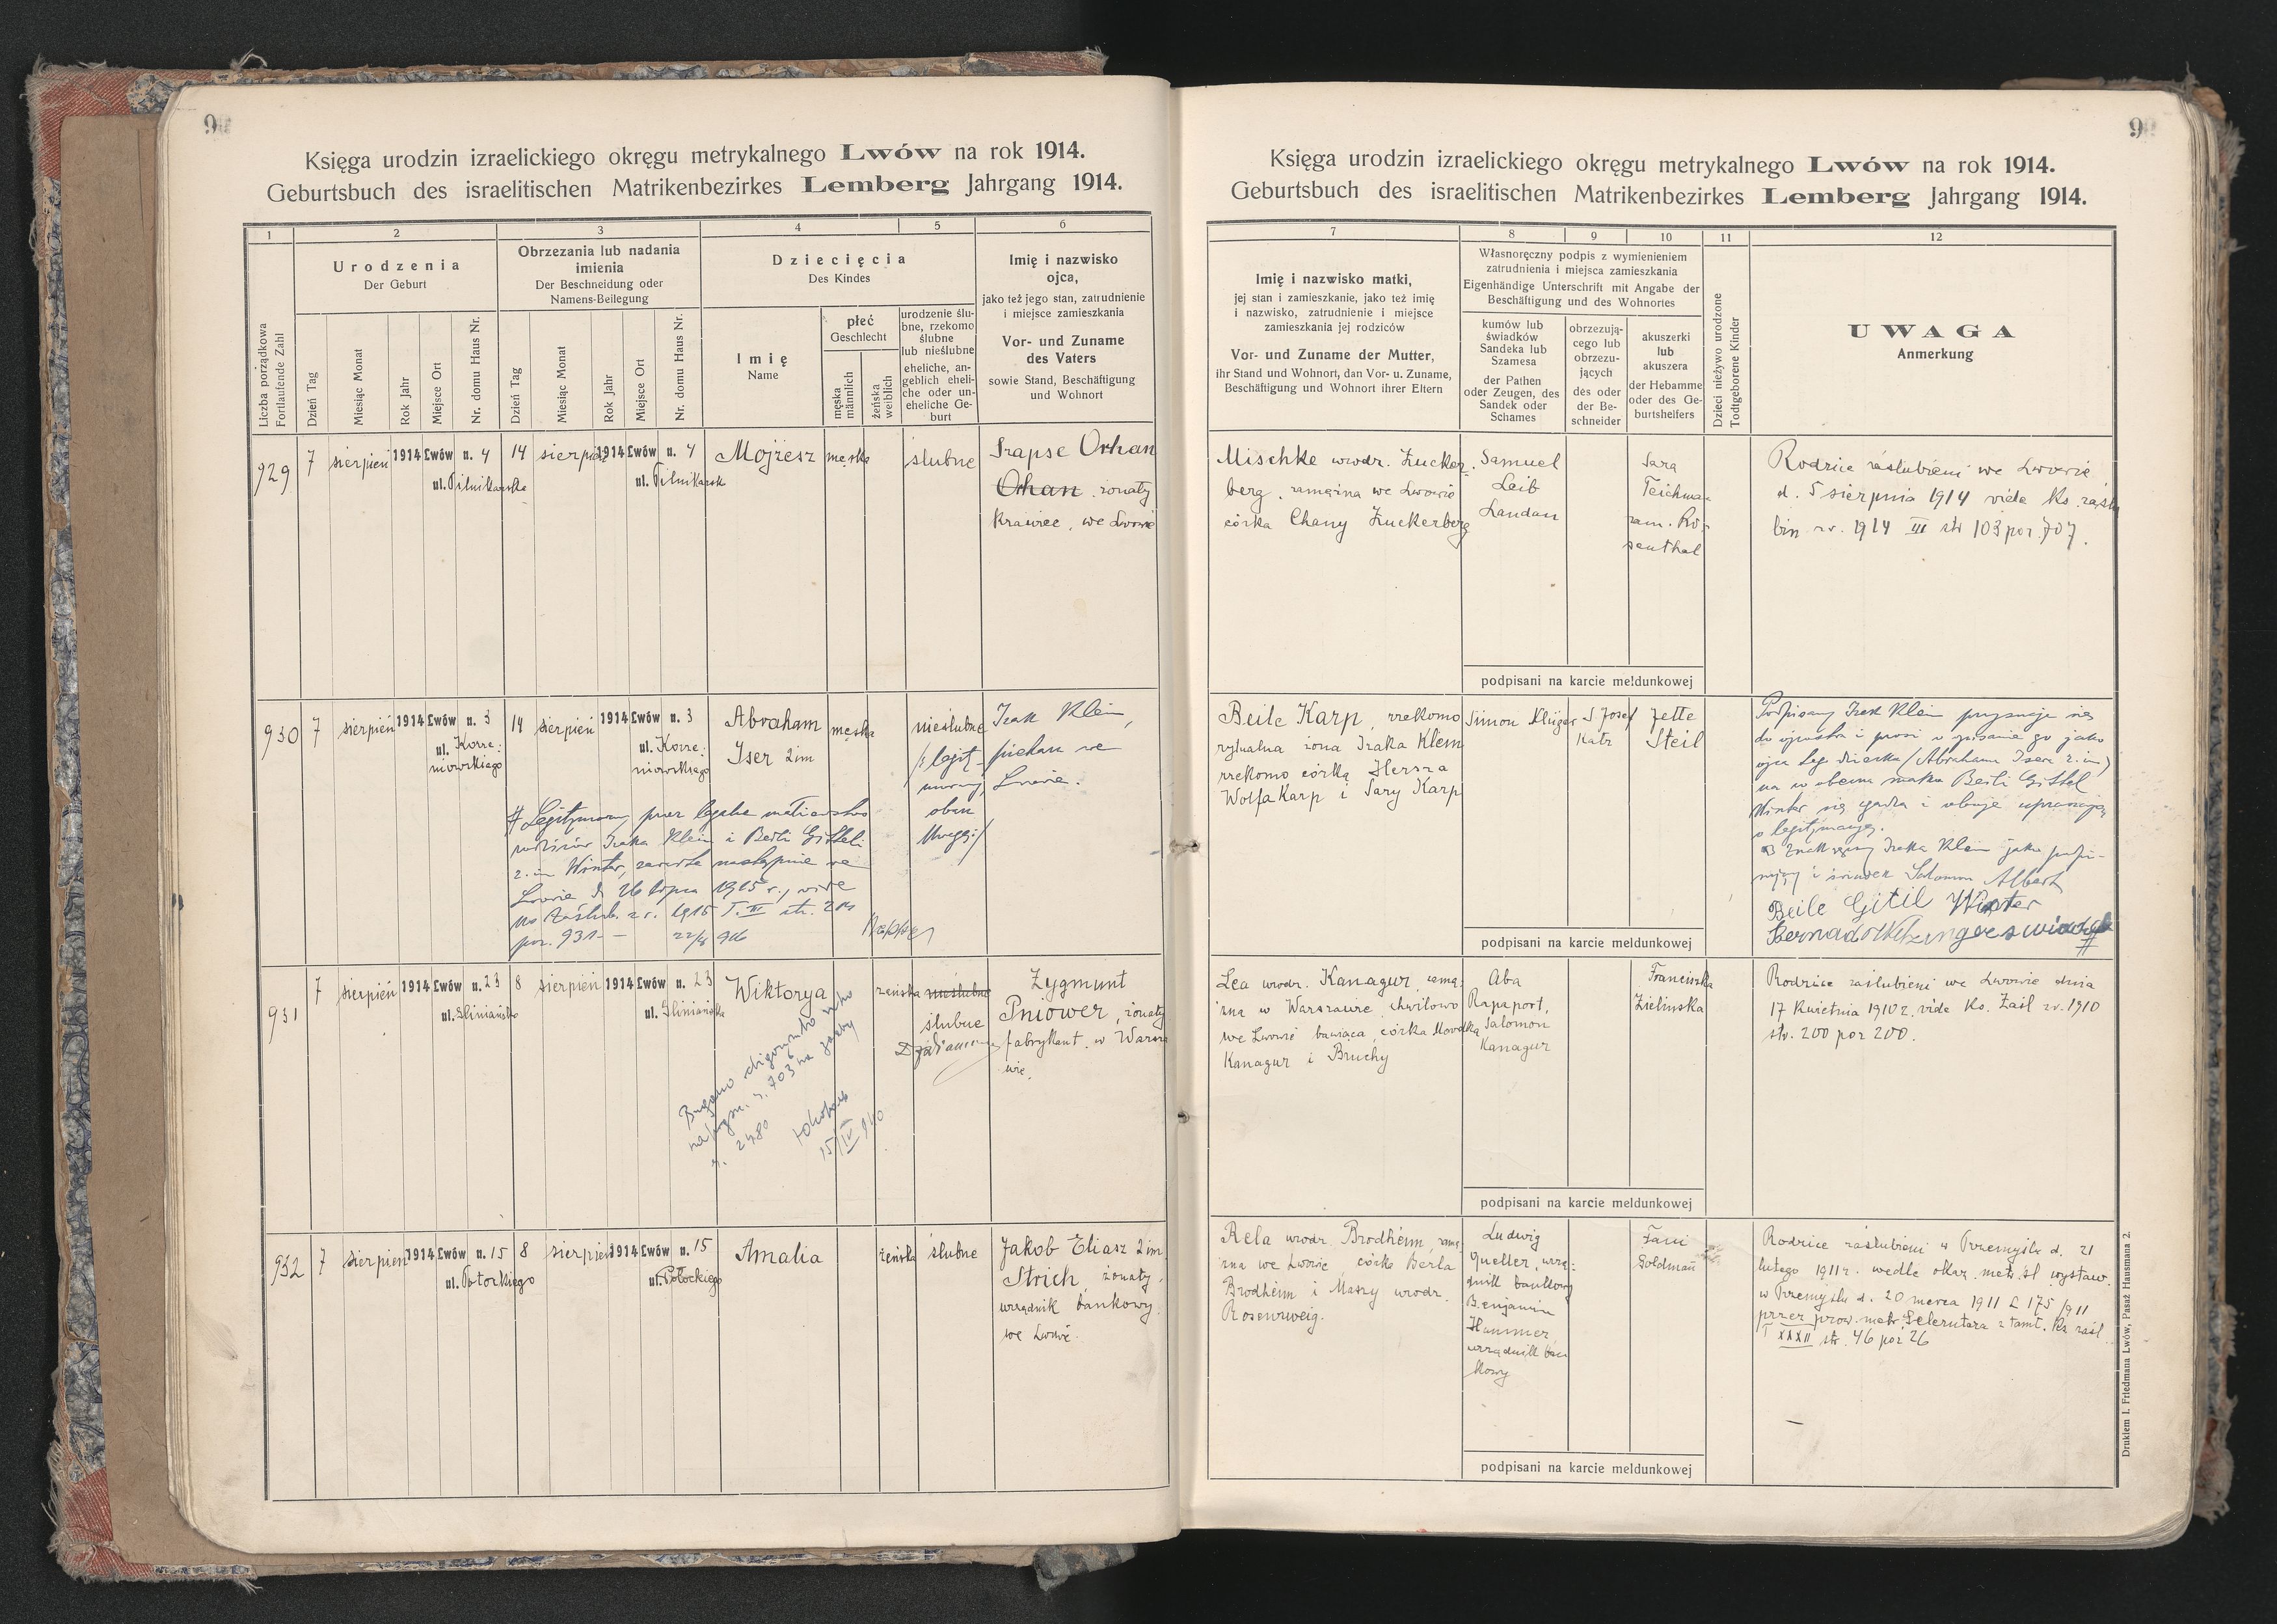 9
Księga urodzin izraelickiego okręgu metrykalnego Lwów na rok 1914.
Geburtsbuch des israelitischen Matrikenbezirkes Lemberg Jahrgang 1914.
1
2
3
4
5
6
Liczba porządkowa
Fortlaufende Zahl
Urodzenia
Der Geburt
Obrzezania lub nadania
imienia
Der Beschneidung oder
Namens-Beilegung
Dziecięcia
Des Kindes
Dzień Tag
Miesiąc Monat
Rok Jahr
Miejsce Ort
Nr. domu Haus Nr.
Dzień Tag
Miesiąc Monat
Rok Jahr
Miejsce Ort
Nr. domu Haus Nr.
Imię
Name
płeć
Geschlecht
męska
männlich
żeńska
weiblich
urodzenie ślu-
bne, rzekomo
ślubne
lub nieślubne
eheliche, an-
geblich eheli-
che oder un-
eheliche Ge-
burt
Imię i nazwisko
ojca,
jako też jego stan, zatrudnienie
i miejsce zamieszkania
Vor- und Zuname
des Vaters
sowie Stand, Beschäftigung
und Wohnort
929 7 sierpień 1914 Lwów n. 4 14 sierpień 1914 Lwów n. 4 Mojżesz męska ślubne
ul. Pilnikarska ul. Pilnikarsk
Srapse Orhan
Orhan żonaty
krawiec, we Lwowie
930 7 sierpień 1914 Lwów n. 3 14 sierpień 1914 Lwów n. 3 Abraham męska nieślubne
ul. Korze-
niowskiego
ul. Korze-
niowskiego
Iser 2im
/: legit-
obacz
Uwagę:/
Izak Klein,
piekarz we
Lwowie.
# Legitymowany przez legalne małżeństwo
rodziców Izaka Klein i Beili Gitteli
2. im Winter, zawarte następnie we
Lwowie d. 26 lipca 1915 r., vide
ks zaślub. z r. 1915 T. III str.
poz. 931 —
931 7 sierpień 1914 Lwów n. 23 8 sierpień 1914 Lwów n. 23 Wiktorya żeńska nieślubne
ul. Gliniańska ul. Gliniańska
ślubne
Zygmunt
Pniower, żonaty
fabrykant. w Warsza
wie.
703 na
15/IV 940
932 7 sierpień 1914 Lwów n. 15 8 sierpień 1914 Lwów n. 15 Amalia żeńska ślubne
ul. Potockiego ul. Potockiego
Jakob Eliasz 2im
Strich, żonaty,
urzędnik bankowy.
we Lwowie.
9
Księga urodzin izraelickiego okręgu metrykalnego Lwów na rok 1914.
Geburtsbuch des israelitischen Matrikenbezirkes Lemberg Jahrgang 1914.
7
8
9
10
11
12
Imię i nazwisko matki,
jej stan i zamieszkanie, jako też imię
i nazwisko, zatrudnienie i miejsce
zamieszkania jej rodziców
Vor- und Zuname der Mutter,
ihr Stand und Wohnort, dan Vor- u. Zuname,
Beschäftigung und Wohnort ihrer Eltern
Własnoręczny podpis z wymienieniem
zatrudnienia i miejsca zamieszkania
Eigenhändige Unterschrift mit Angabe der
Beschäftigung und des Wohnortes
kumów lub
świadków
Sandeka lub
Szamesa
der Pathen
oder Zeugen, des
Sandek oder
Schames
obrzezują-
cego lub
obrzezu-
jących
des oder
der Be-
schneider
akuszerki
lub
akuszera
der Hebamme
oder des Ge-
burtshelfers
Dzieci nieżywo urodzone
Todtgeborene Kinder
UWAGA
Anmerkung
Mischke urodz. Zucker-
berg, zamężna we Lwowie
córka Chany Zuckerberg
Samuel
Leib
Landau
Sara
Teichman
zam. Ro-
senthal
Rodzice zaślubieni we Lwowie
d. 5 sierpnia 1914 vide ks. zaślu
bin zr. 1914 III str 103 poz. 707.
podpisani na karcie meldunkowej
Beile Karp, rzekomo
rytualna żona Izaka Klein
rzekomo córka Hersza
Wolfa Karp i Sary Karp
Simon Klüger
Josef
Katz
Jette
Steil
Podpisany Izak Klein przyznaje się
do ojcostwa i prosi o wpisanie go jako
ojca tego dziecka (Abrahama Isera 2. im)
na co obecna matka Beili Gittel
Winter się zgadza i oboje upraszają
o legitymację.
Znak ręczny Izaka Klein jako
i świadek Salomon Albert
Beile Gitil Winter
podpisani na karcie meldunkowej
Lea urodz. Kanagur, zamę-
żna w Warszawie, chwilowo
we Lwowie bawiąca, córka
Kanagur i Bruchy
Aba
Rapaport,
Salomon
Kanagur
Franciszka
Zielinska
Rodzice zaślubieni we Lwowie dnia
17 kwietnia 1910 r. vide ks. Zaśl zr. 1910
str. 200 poz 200.
podpisani na karcie meldunkowej
Rela urodz. Brodheim, zamę-
żna we Lwowie, córka Berla
Brodheim i Maszy urodz.
Rosenzweig.
Ludwig
Queller, urzę-
dnik bankowy
Benjamin
Hammer,
urzędnik ban
kowy
Fani
Goldman
Rodzice zaślubieni w Przemyślu d. 21
lutego 1911 r. wedle okaz. metr. śl wystaw.
w Przemyślu d. 20 marca 1911 L 175/911
przez prow. metr. Gelerntera z tamt. ks zaśl
T XXXII str. 46 poz 26
podpisani na karcie meldunkowej
Drukiem I. Friedmana Lwów, Pasaż Hausmana 2.